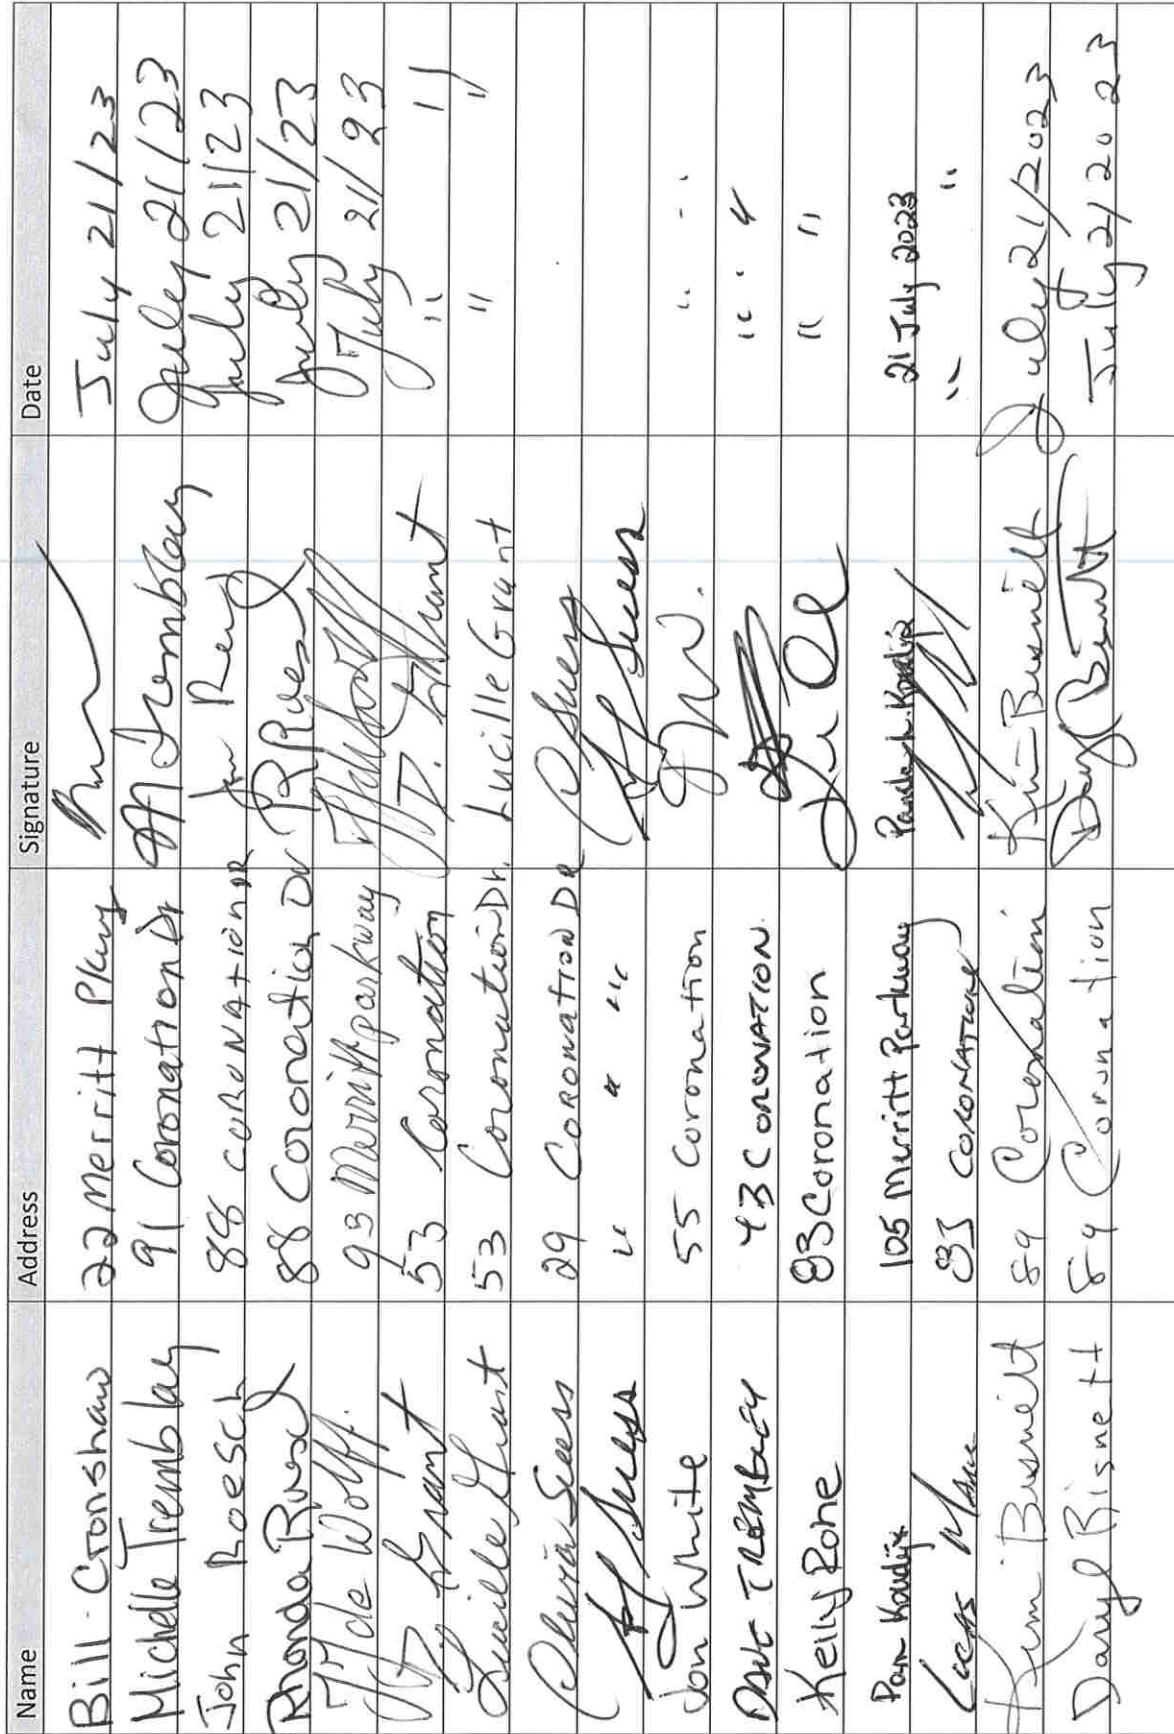 Name Address Signature Date
Bill Cronshaw 22 Merritt Pkwy July 21/23
Michelle Tremblay 91 Coronation Dr M Tremblay July 21/23
John Roesch 88 CORONATION DR July 21/23
Rhonda 88 Coronation Dr July 21/23
de Wolff 93 Merritt parkway July 21/23
Grant 53 Coronation Grant " "
Lucille Grant 53 Coronation Dr. Lucille Grant " "
Suess 29 CORONATION DR Suess
Suess " " " Suess
Jon White 55 Coronation JW. " "
TREMBLAY 43 CORONATION. " "
Kelly Rone 83 Coronation " "
Pam 105 Merritt Parkway 21 July 2023
83 CORONATION " "
Kim Bisnett 89 Coronation Kim Bisnett July 21/2023
Daryl Bisnett 89 Coronation Daryl Bisnett July 21/2023